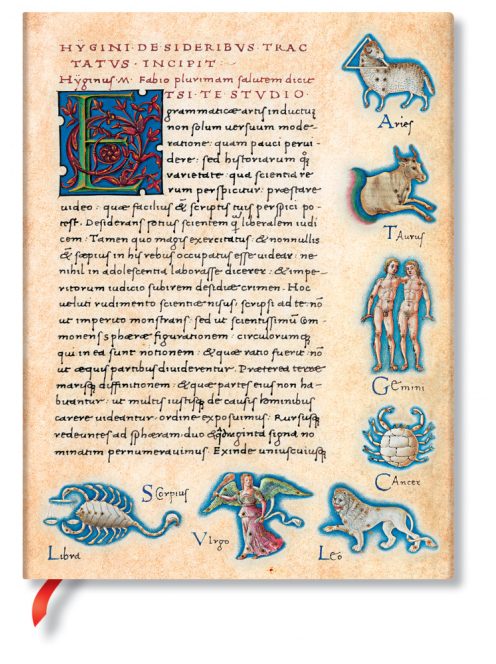 HYGINI·DE·SIDERIBVS·TRAC
TATVS·INCIPIT·
Hÿginus M· Fabio plurimam salutem dicit
ETSI·TE·STUDIO·
grammaticæ artis inductum
non solum uersuum mode-
ratione: quam pauci perui-
dere: sed hystoriarum
uarietate· qua scientia re
rum perspicitur: præstare
uideo· quæ facilius & scriptis tuis perspici po-
test. Desiderans potius scientem liberalem iudi
cem. Tamen quo magis exercitatus· & nonnullis
& sæpius in his rebus occupatus esse uidear: ne
nihil in adolescentia laborasse dicerer: & impe-
ritorum iudicio subirem desidiæ crimen. Hoc
ueluti rudimento scientiæ nisus, scripsi ad te: nō
ut imperito monstrans: sed ut scientissimū Com-
monens sphæræ figurationem: circulorumq
qui in ea sunt notionem: & quæ ratio fuerit nō
ut æquis partibus diuiderentur. Præterea terræ
marisq diffinitionem: & quæ partes eius non ha-
buantur: ut multis iustisq de causis hominibus
carere uideantur· ordine exposuimus. Rursusq
redeuntes ad sphæram· duo & quadraginta signa no
minatim pernumerauimus. Exinde uniuscuiusq
Aries
Taurus
Gemini
CAncer
Leo
Virgo
SCorpius
Libra